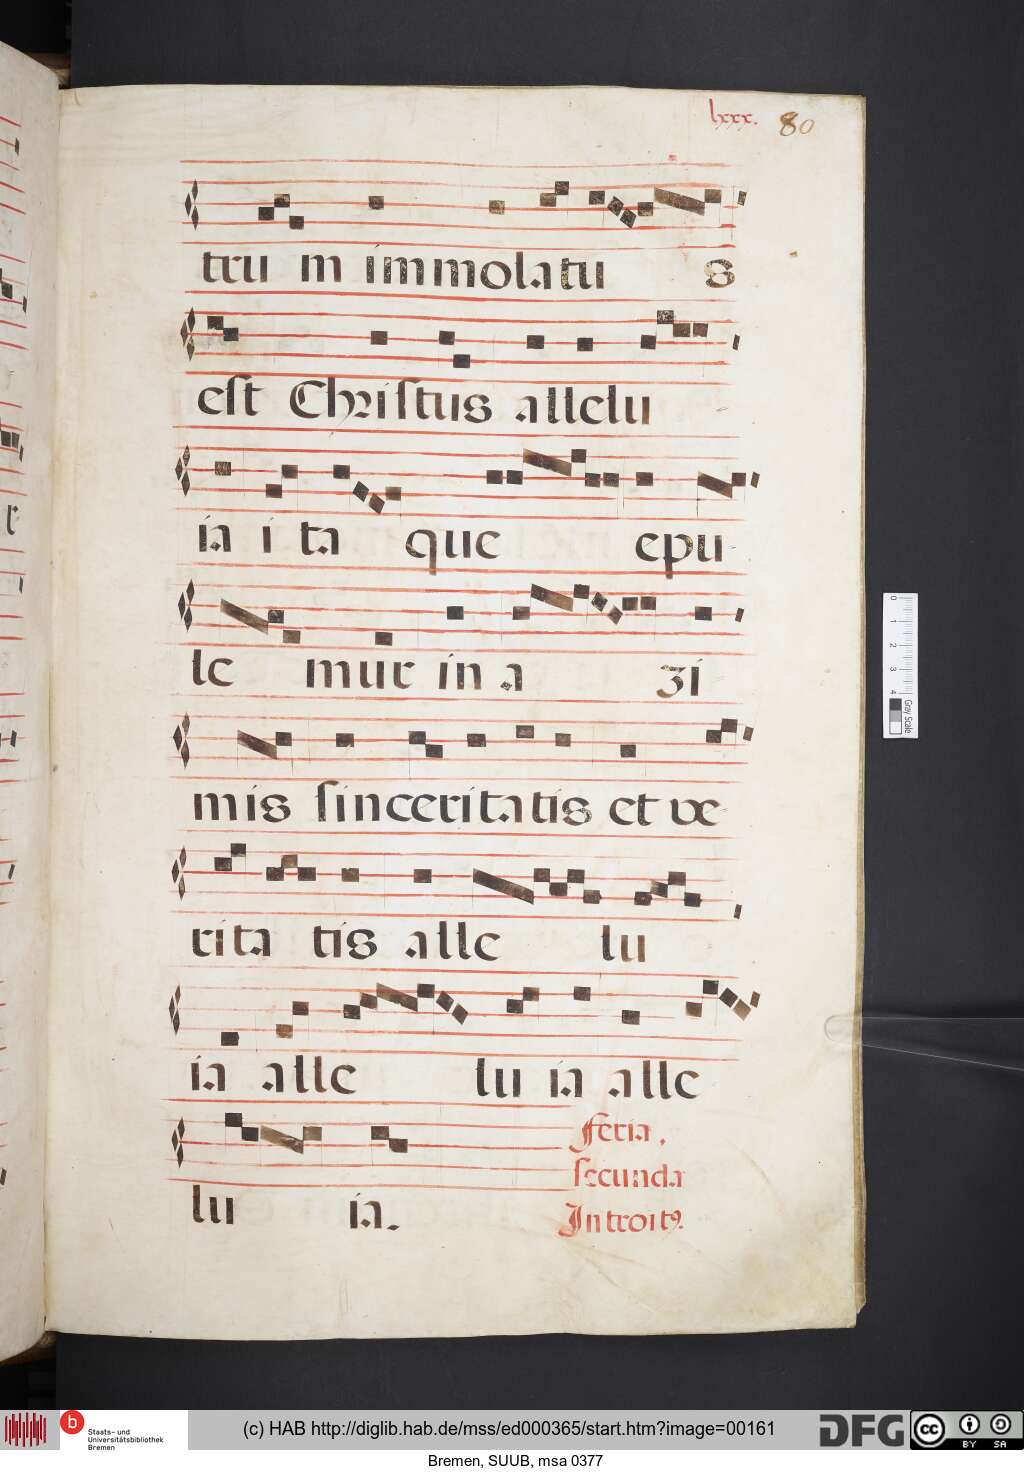 lxxx. 80
tru m immolatu s
est Christus allelu
ia i ta que epu
le mur in a zi
mis sinceritatis et ve
rita tis alle lu
ia alle lu ia alle
lu ia.
feria.
secunda
Introit9.
0 1 2 3 4
Gray Scale
b Staats- und
Universitätsbibliothek
Bremen
(c) HAB http://diglib.hab.de/mss/ed000365/start.htm?image=00161
DFG
cc BY SA
Bremen, SUUB, msa 0377